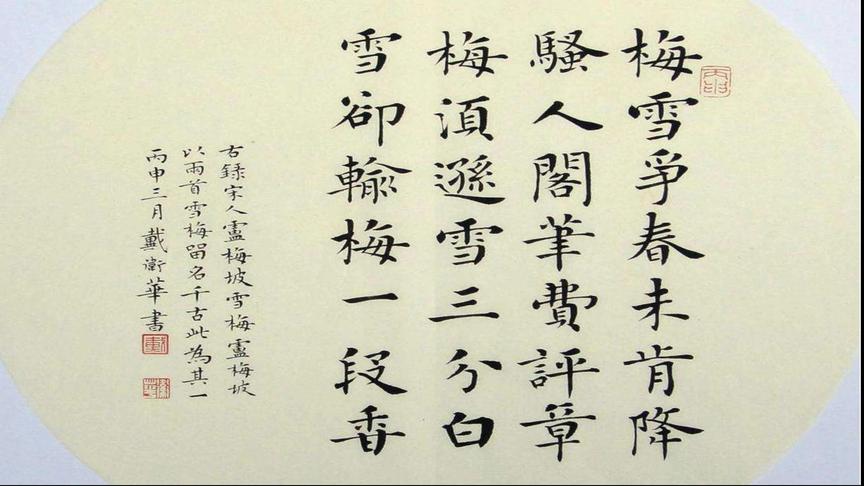 梅雪爭春未肯降
騷人閣筆費評章
梅須遜雪三分白
雪卻輸梅一段香
右錄宋人盧梅坡雪梅盧梅坡
以兩首雪梅留名千古此為其一
丙申三月戴衛華書
丙申